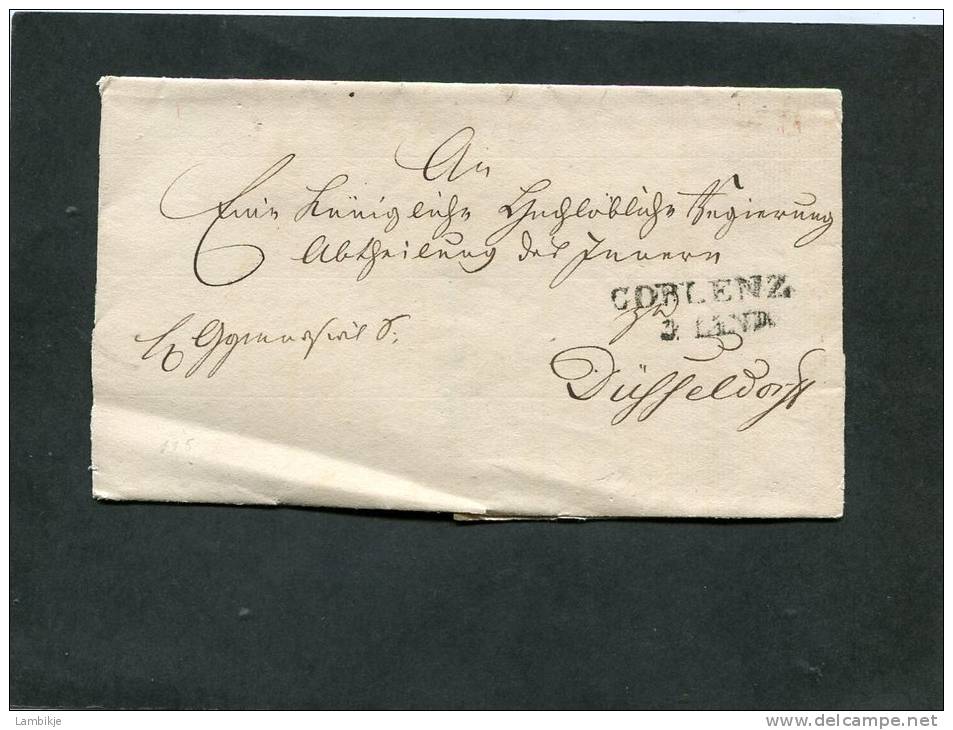 An
Eine Königliche Hochlöbliche Regierung
Abtheilung des Innern
COBLENZ
zu
Düsseldorff
115
Lambikje
www.delcampe.net